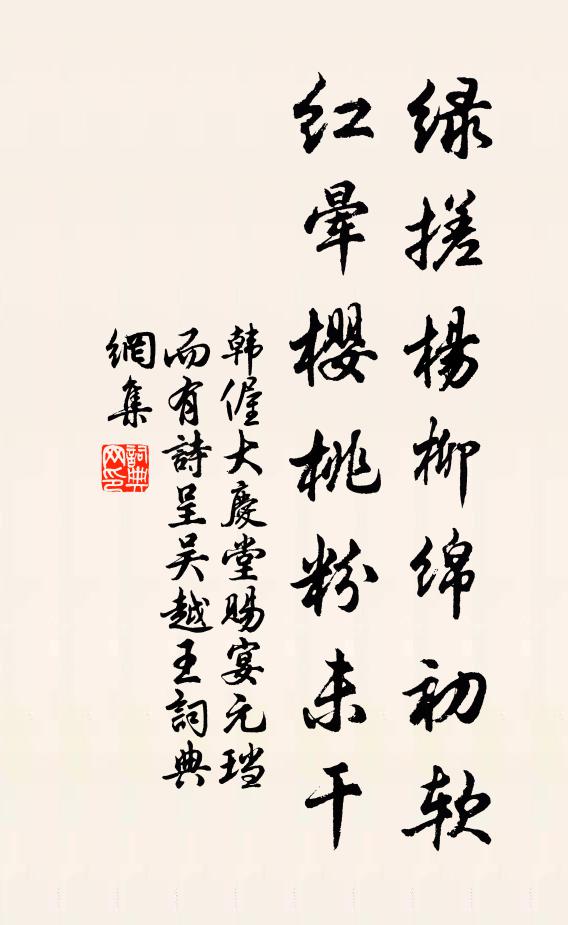 绿搓杨柳绵初软
红晕樱桃粉未干
韩偓大慶堂賜宴元璫
而有詩呈吴越王詞典
網集
詞典
网印